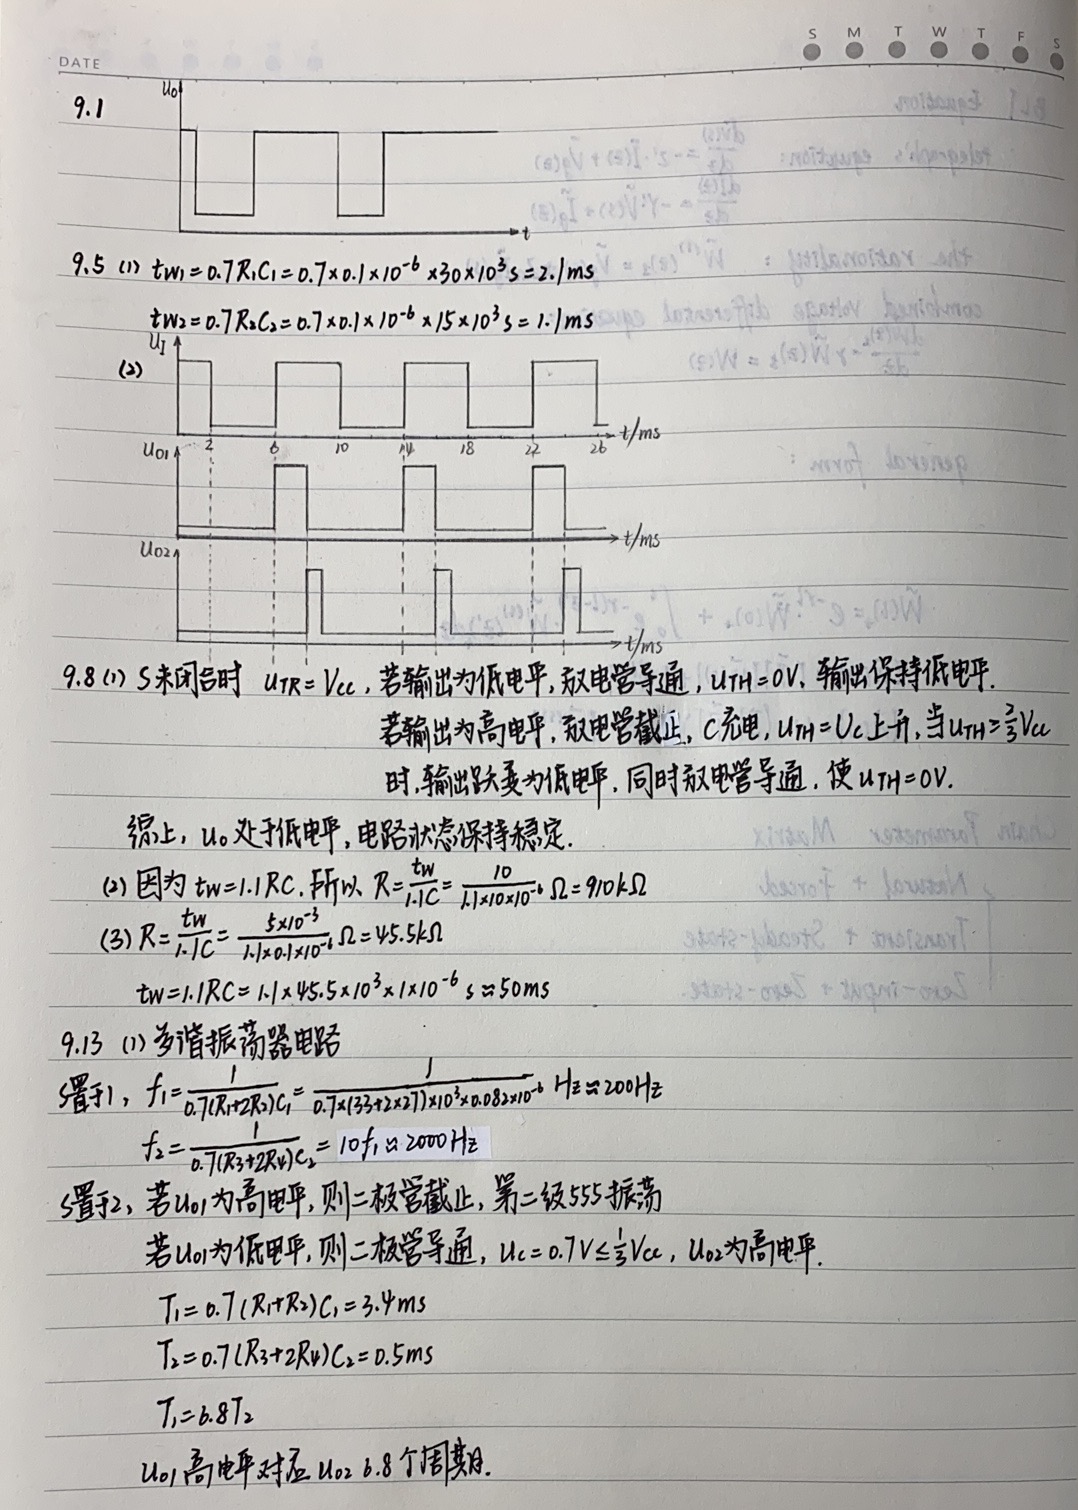 S M T W T F S
DATE
9.1 u₀
t
9.5 (1) tW1=0.7R₁C₁=0.7×0.1×10⁻⁶×30×10³s=2.1ms
tW2=0.7R₂C₂=0.7×0.1×10⁻⁶×15×10³s=1.1ms
(2) U_I
2 6 10 14 18 22 26 t/ms
U₀₁
t/ms
U₀₂
t/ms
9.8 (1) S未闭合时 u_TR=Vcc, 若输出为低电平,放电管导通,u_TH=0V,输出保持低电平.
若输出为高电平,放电管截止,C充电,u_TH=U_C上升,当u_TH≥2/3Vcc
时,输出跃变为低电平,同时放电管导通,使u_TH=0V.
综上,u₀处于低电平,电路状态保持稳定.
(2) 因为tw=1.1RC.所以R=tw/1.1C=10/1.1×10×10⁻⁶Ω=910kΩ
(3) R=tw/1.1C=5×10⁻³/1.1×0.1×10⁻⁶Ω=45.5kΩ
tw=1.1RC=1.1×45.5×10³×1×10⁻⁶s≈50ms
9.13 (1) 多谐振荡器电路
S置于1, f₁=1/0.7(R₁+2R₂)C₁=1/0.7×(33+2×27)×10³×0.082×10⁻⁶Hz≈200Hz
f₂=1/0.7(R₃+2R₄)C₂=10f₁≈2000Hz
S置于2,若u₀₁为高电平,则二极管截止,第二级555振荡
若u₀₁为低电平,则二极管导通,u_C=0.7V≤1/3Vcc,u₀₂为高电平.
T₁=0.7(R₁+R₂)C₁=3.4ms
T₂=0.7(R₃+2R₄)C₂=0.5ms
T₁=6.8T₂
u₀₁高电平对应u₀₂6.8个周期.